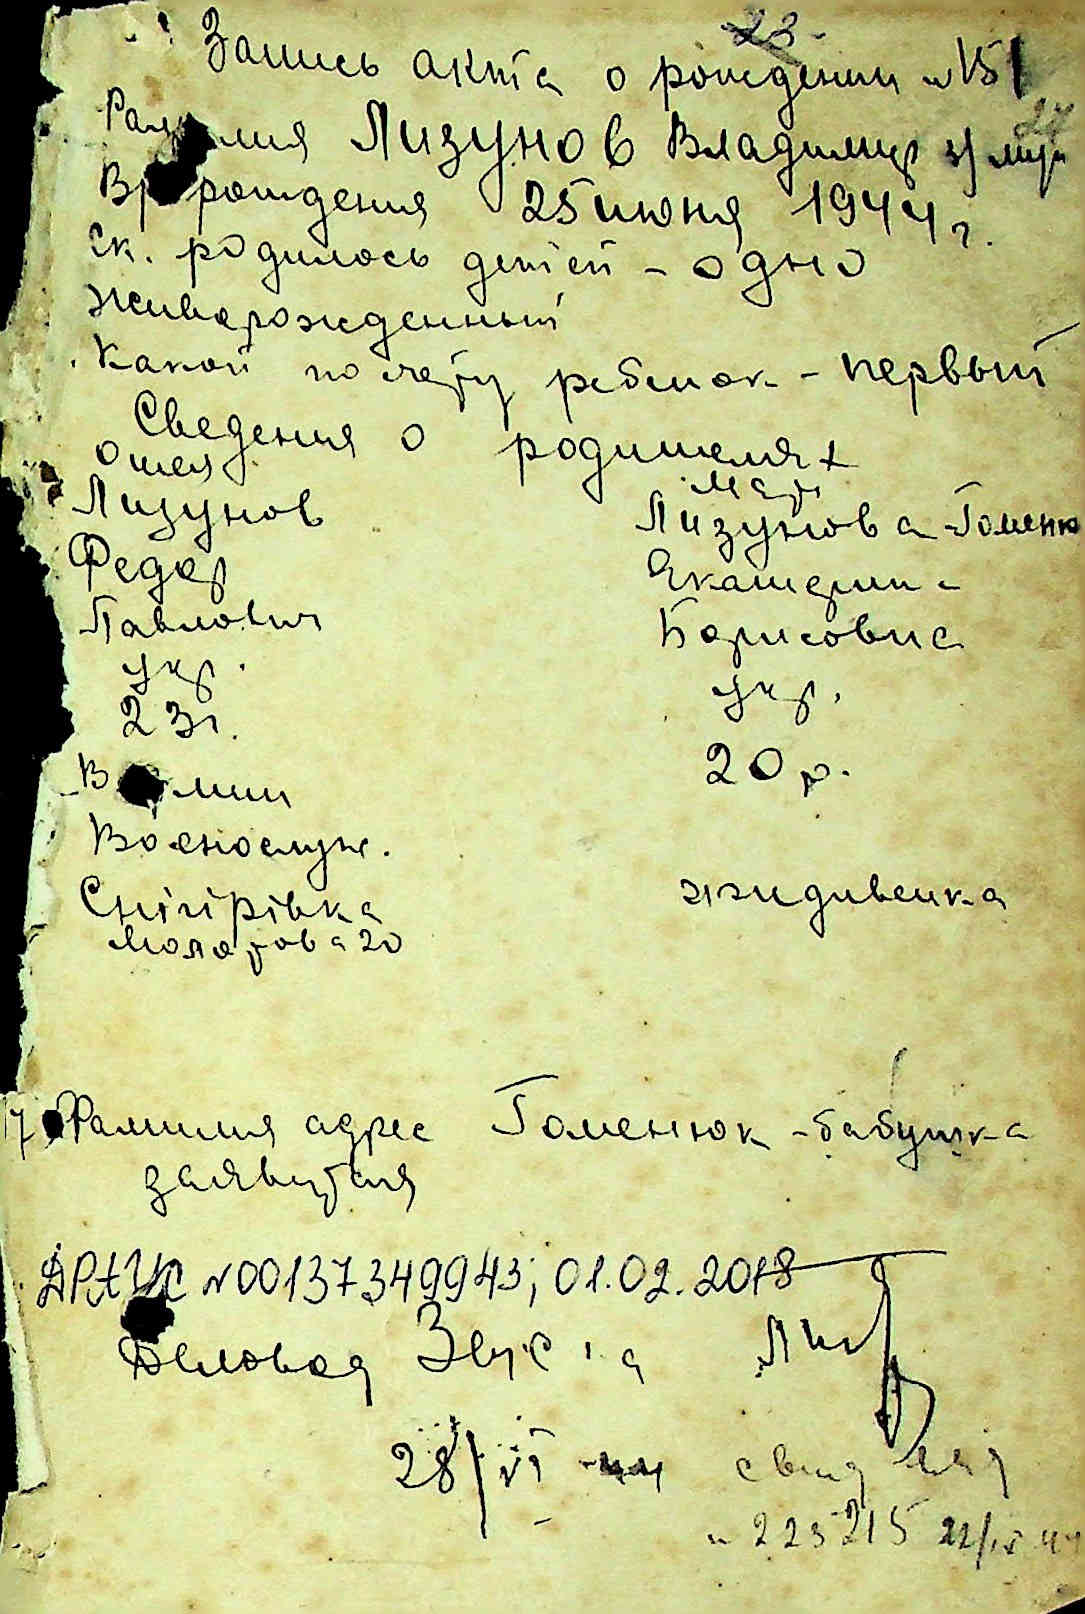 23
Запись акта о рождении №151
27
Фамилия Лизунов Владимир
Вр рождения 25 июня 1944 г.
Ск. родилось детей - одно
живорожденный
Какой по счету ребенок - первый
Сведения о родителях
Отец
Мать
Лизунов
Лизунова-Гоменю
Федор
Екатерина
Павлович
Борисовна
укр.
укр.
23 г.
20 р.
В мии
Военослуж.
Снігірівка
иждивенка
Молотова 20
17 Фамилия адрес Гоменюк - бабушка
заявителя
ДРАЦС №00137349943; 01.02.2018
Деловод
28/VI 44
№ 225215